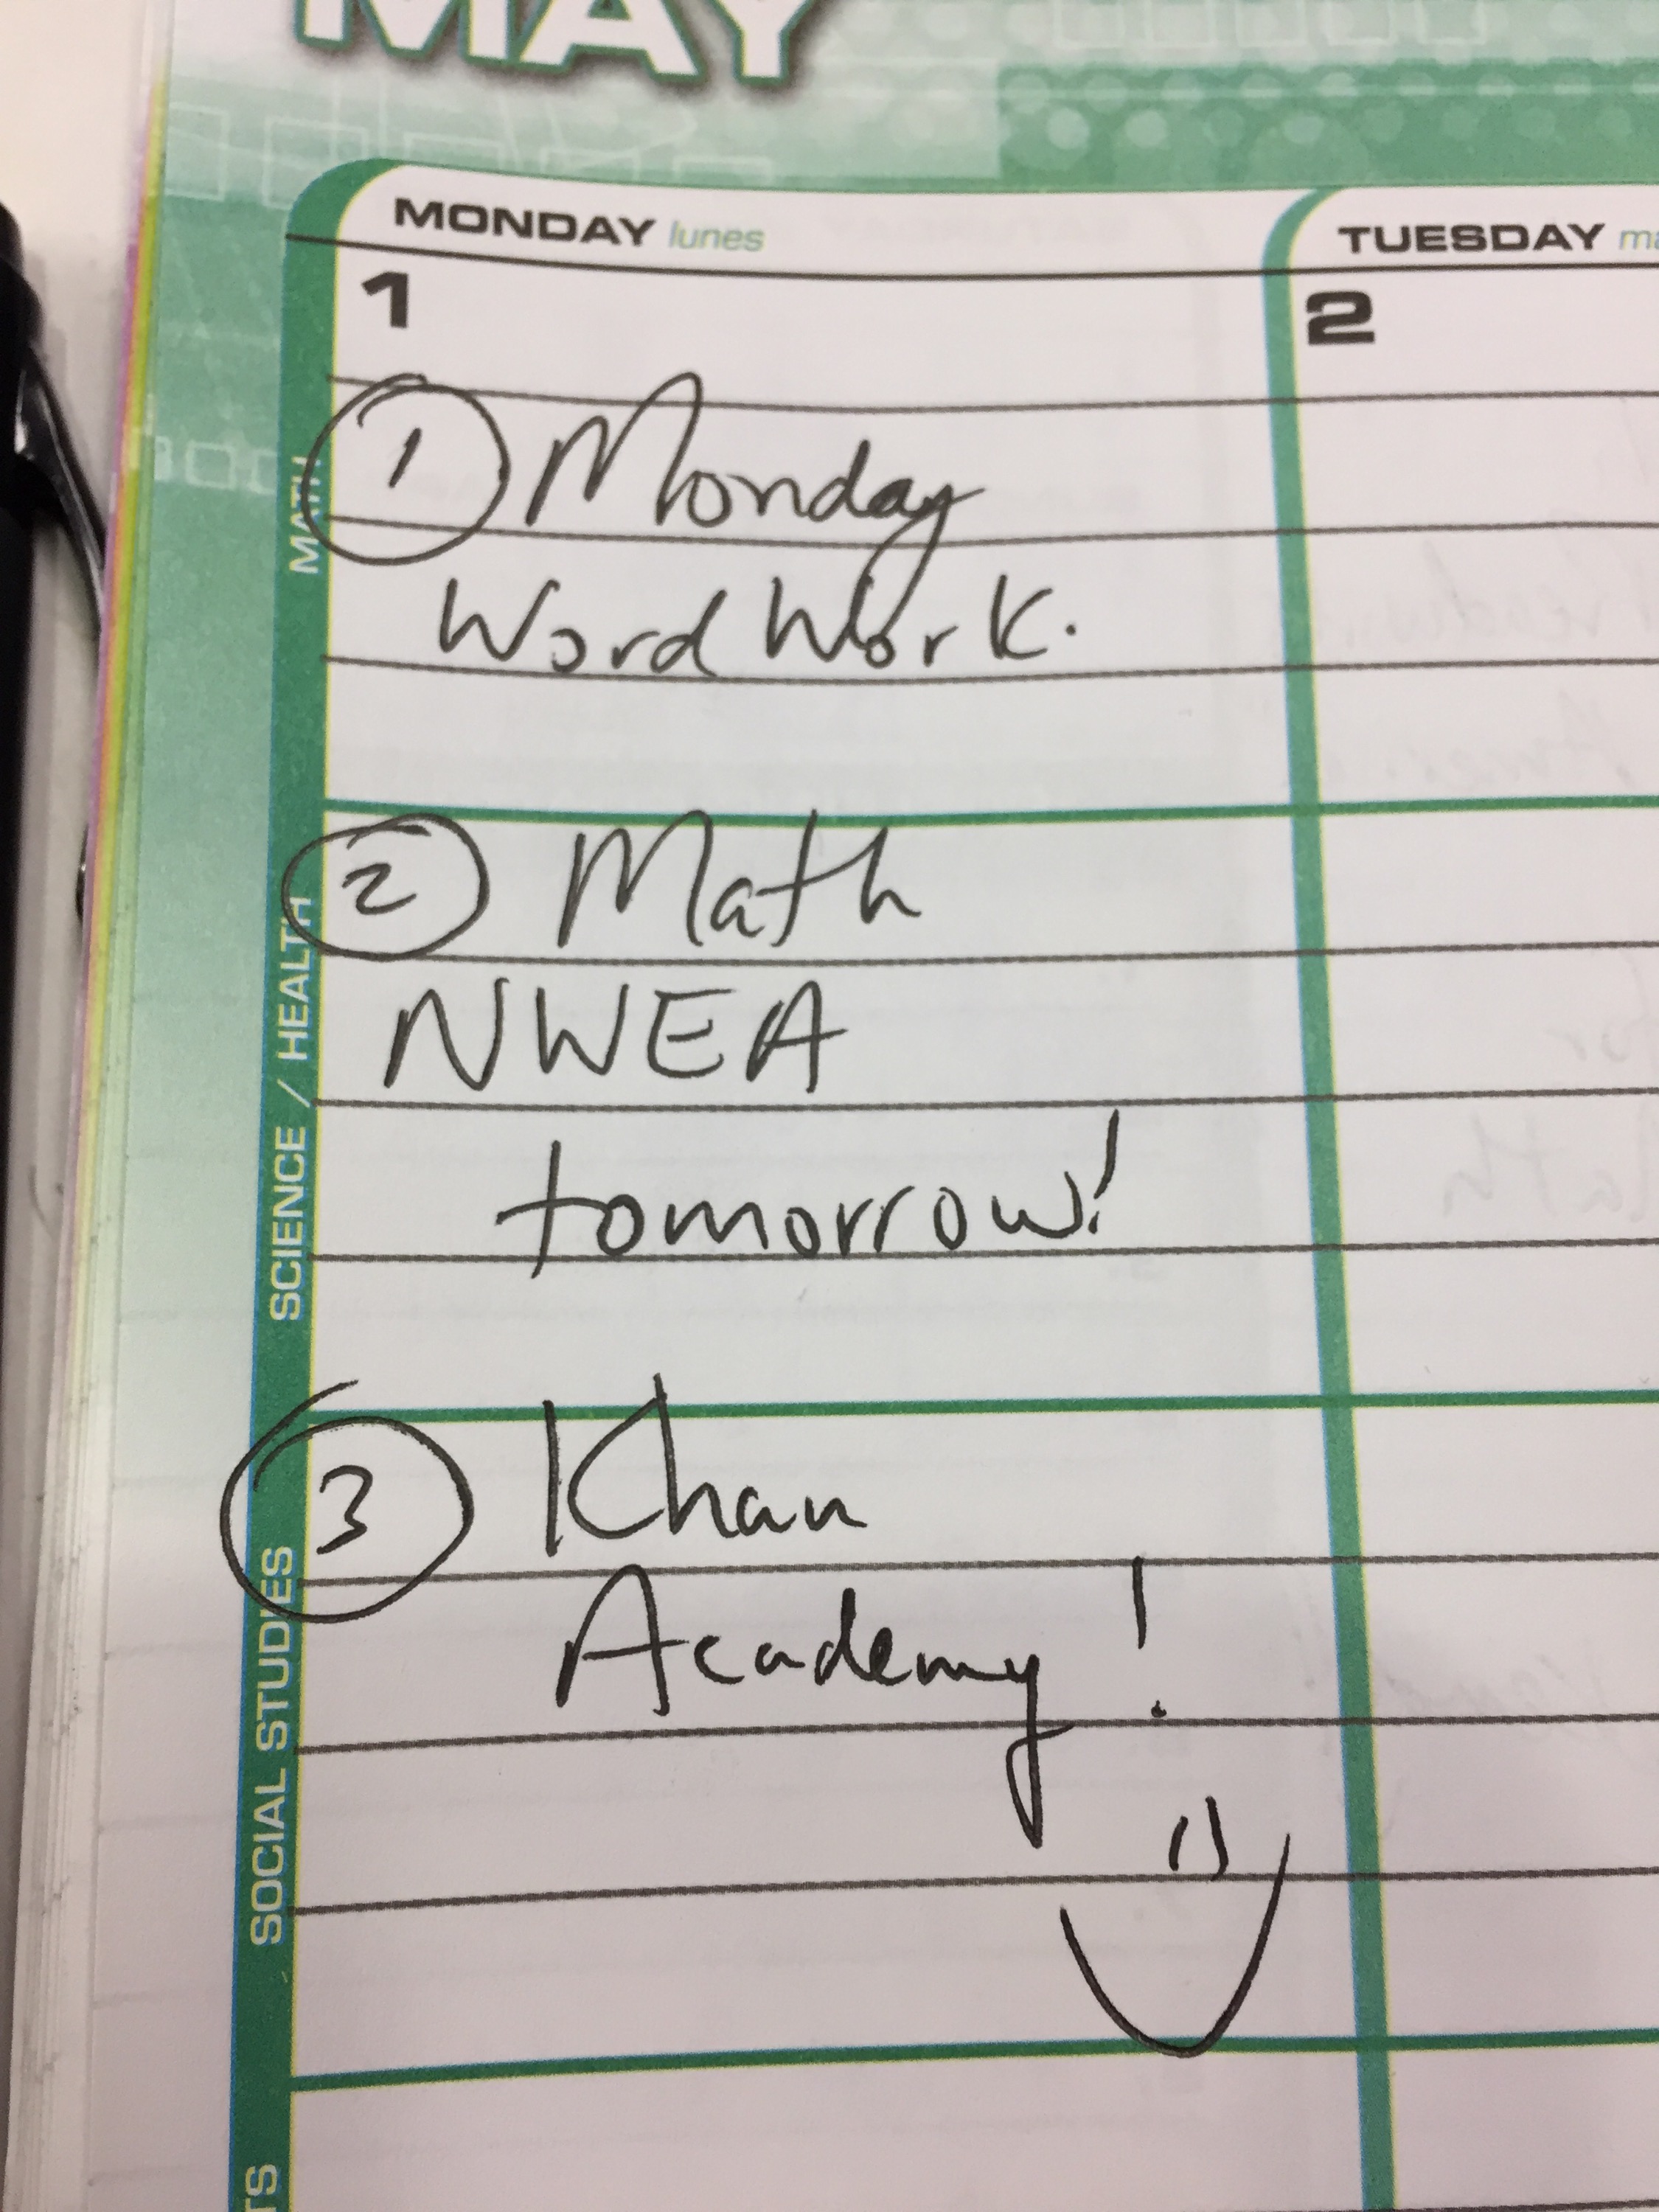 MAY
MONDAY lunes
TUESDAY
1
2
MATH
1 Monday
Word Work.
SCIENCE / HEALTH
2 Math
NWEA
tomorrow!
SOCIAL STUDIES
3 Khan
Academy!